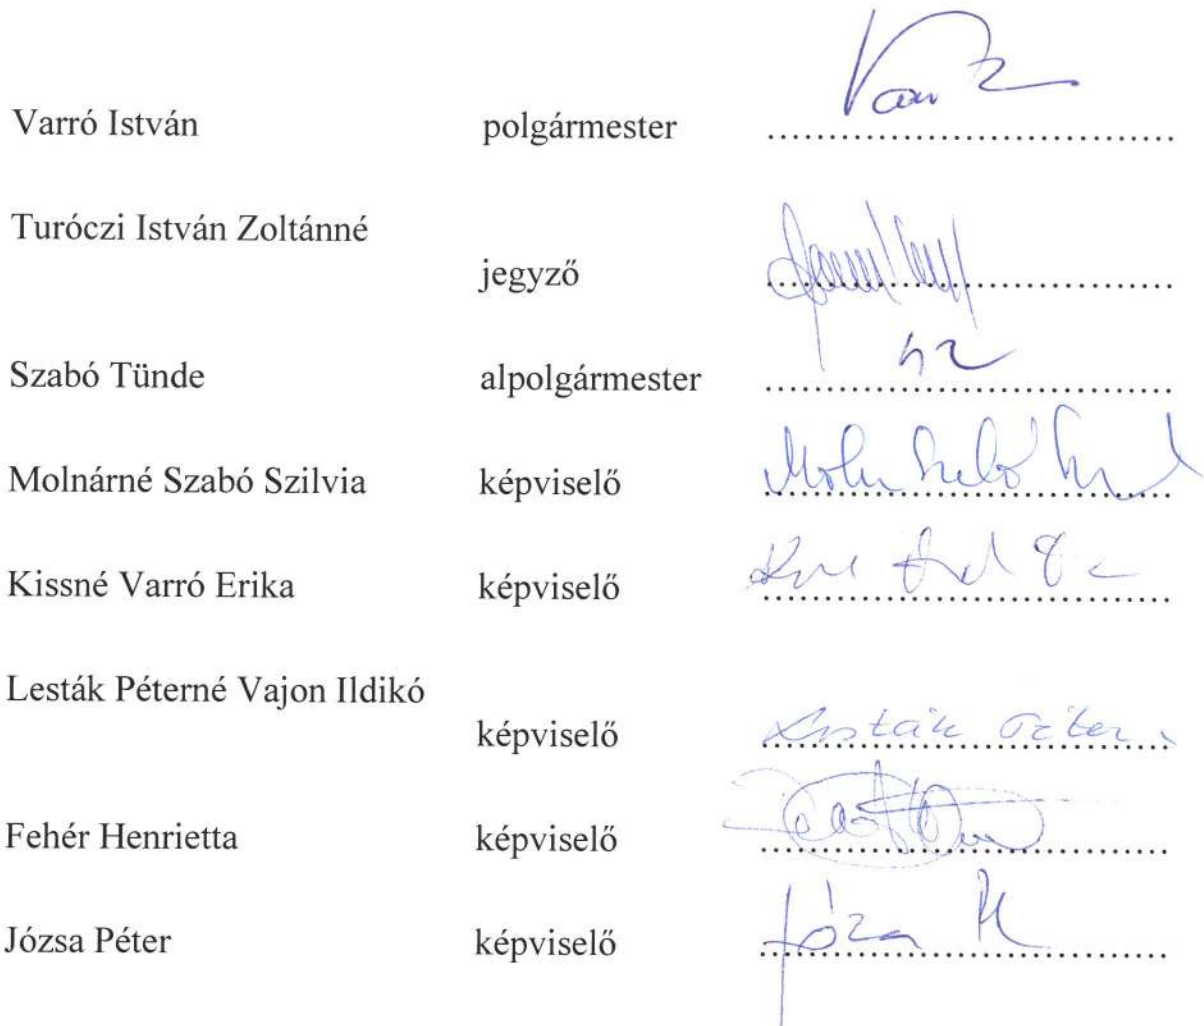 Varró István polgármester ........................................
Turóczi István Zoltánné
jegyző ........................................
Szabó Tünde alpolgármester ........................................
Molnárné Szabó Szilvia képviselő ........................................
Kissné Varró Erika képviselő ........................................
Lesták Péterné Vajon Ildikó
képviselő ........................................
Fehér Henrietta képviselő ........................................
Józsa Péter képviselő ........................................